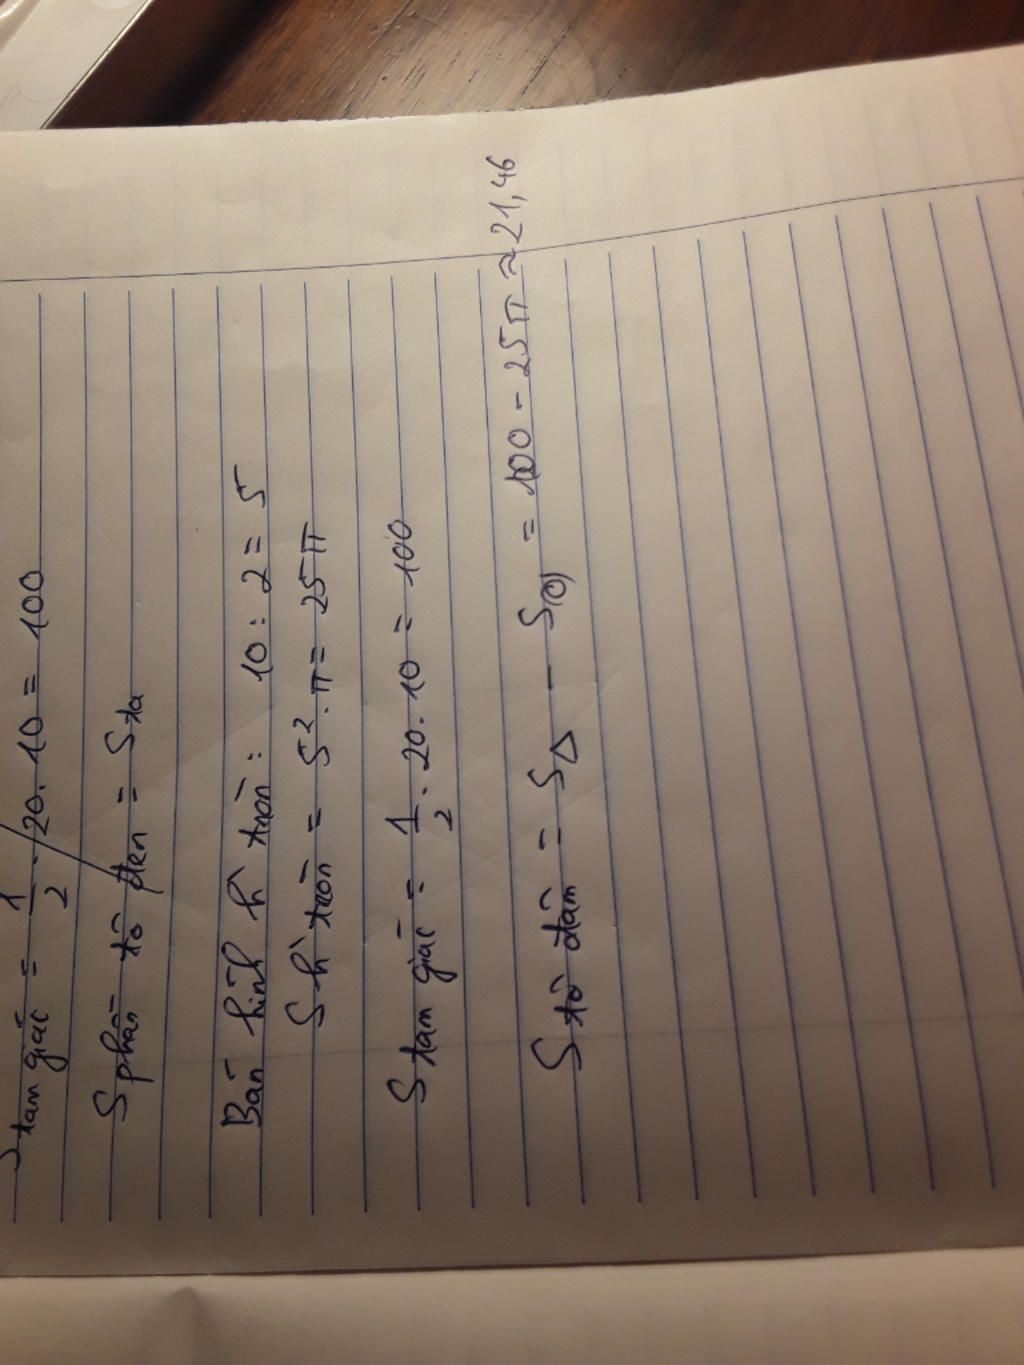 S tam giác = 1/2 . 20. 10 = 100
S phần tô đen = S ta
Bán kính h tròn: 10 : 2 = 5
S h tròn = 5². π = 25π
S tam giác = 1/2 . 20. 10 = 100
S tô đậm = S△ - S(O) = 100 - 25π ≈ 21,46